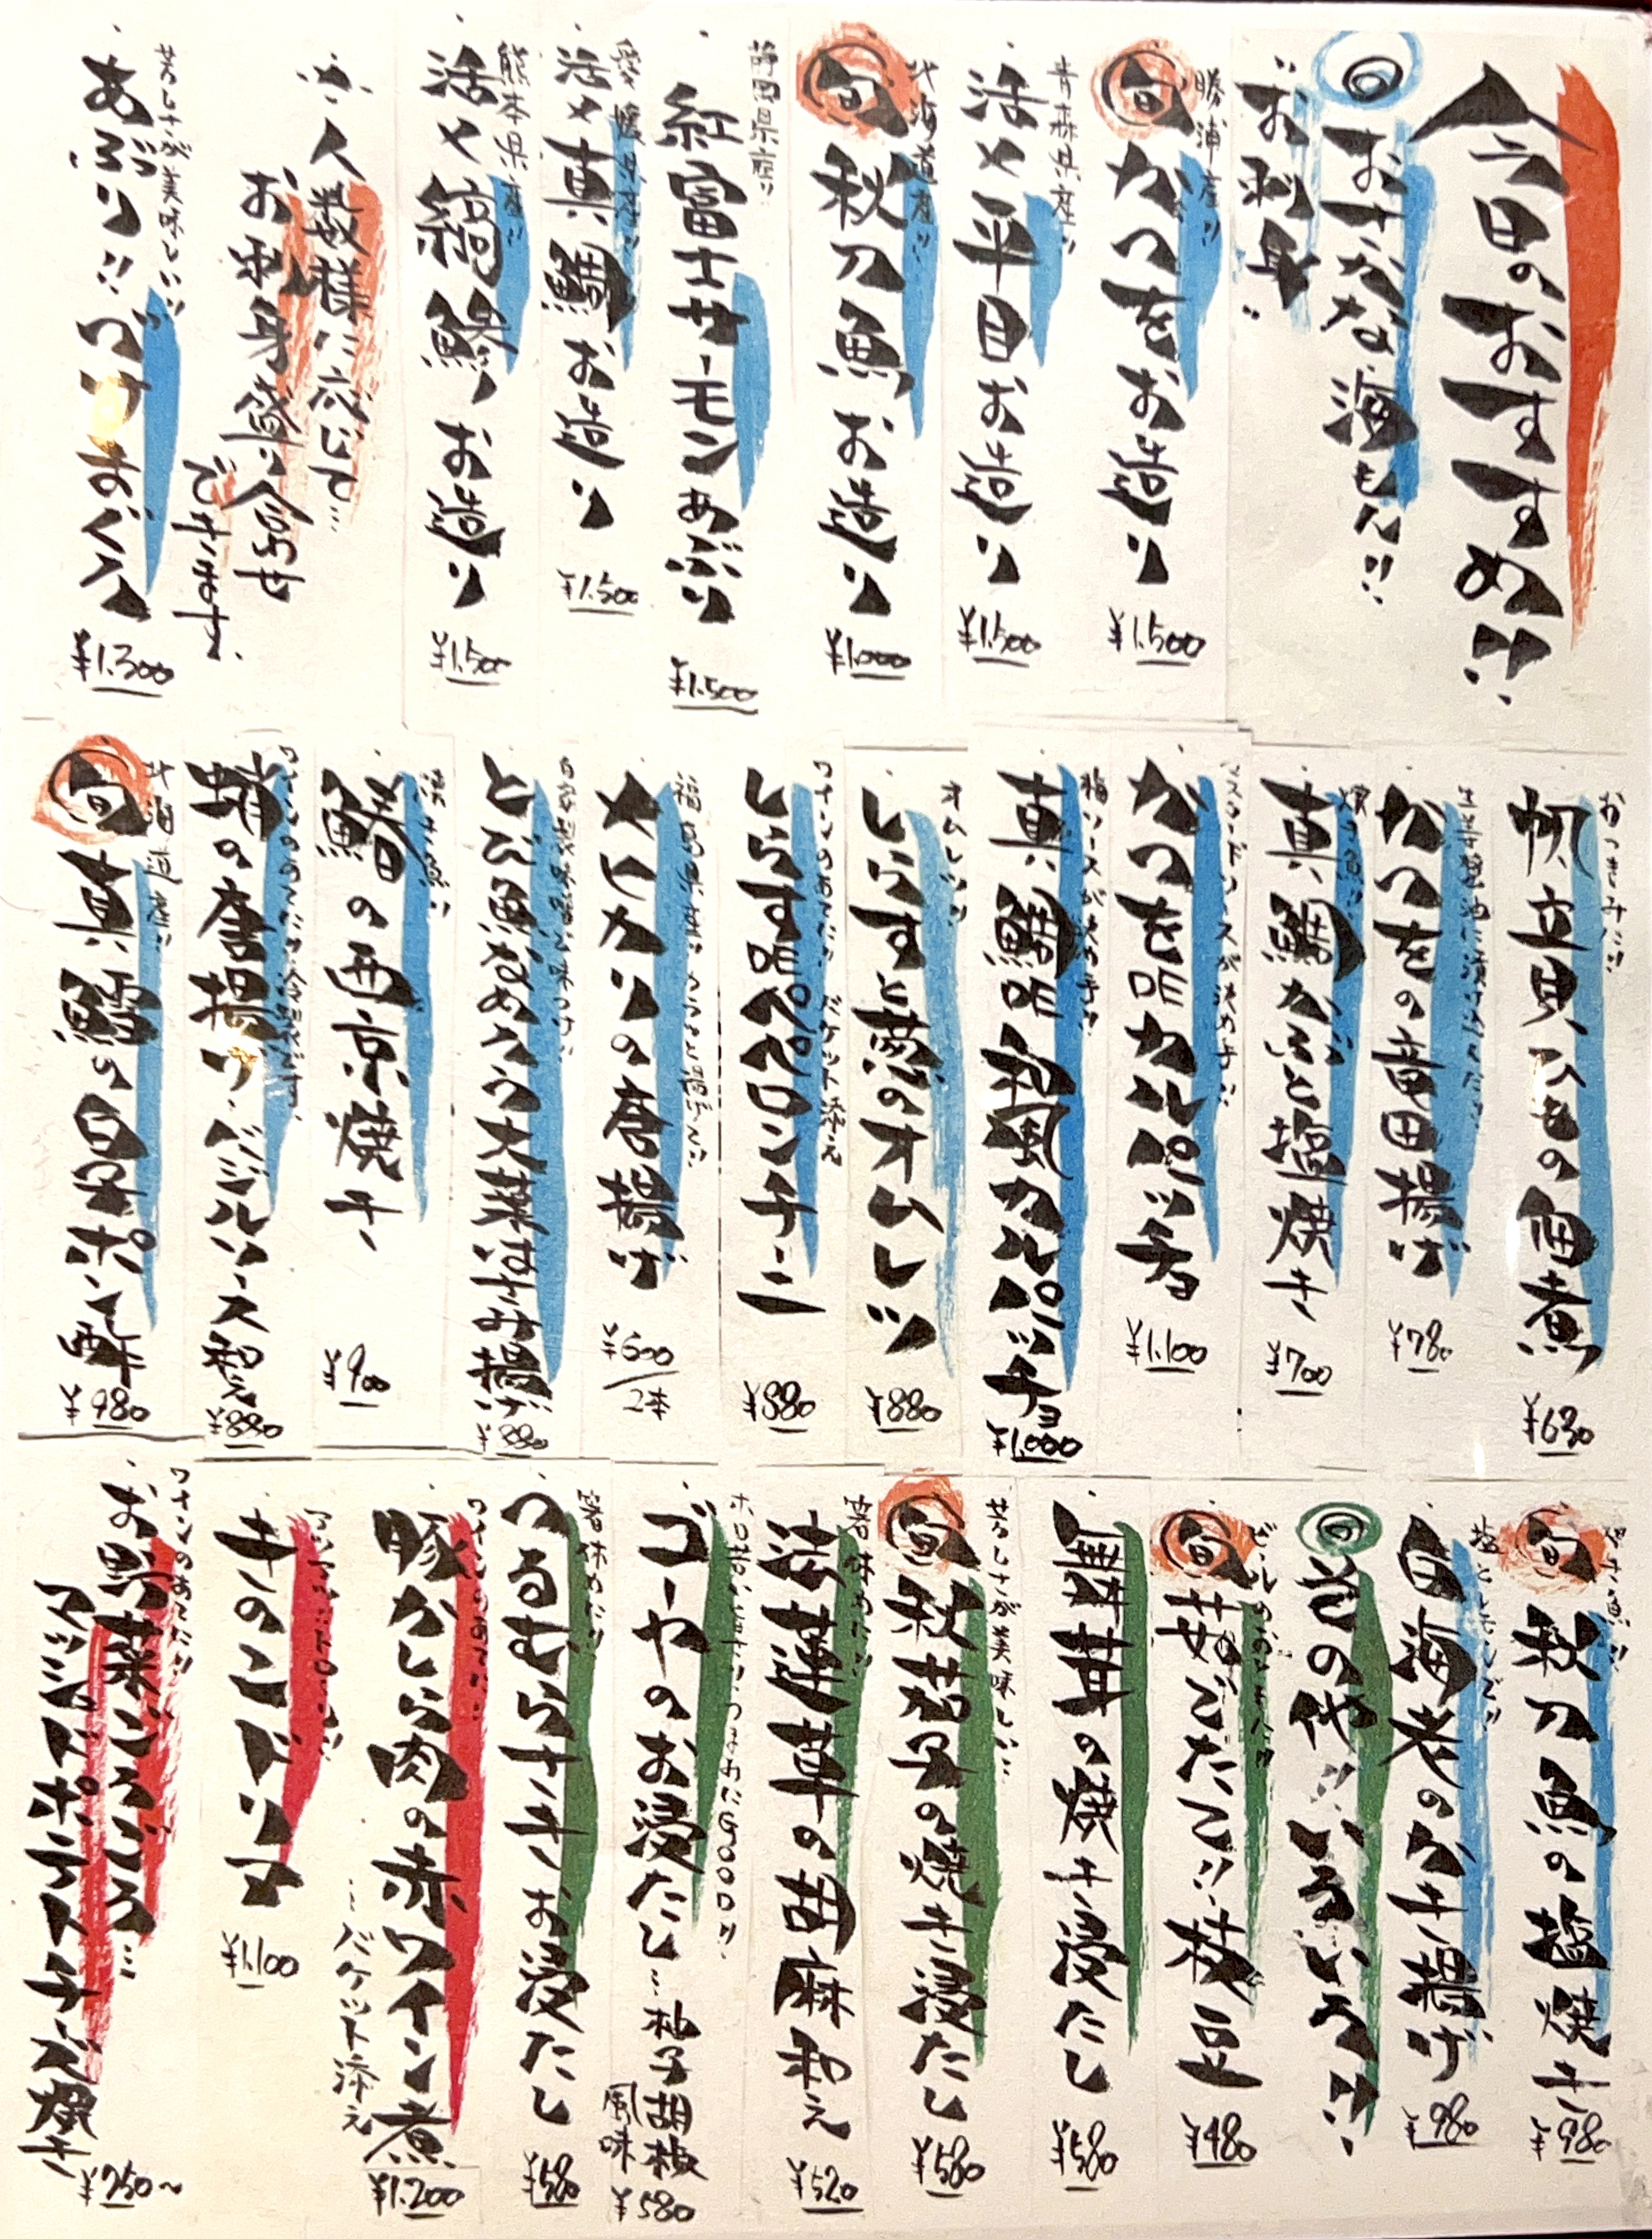 今日のおすすめ!!
◎おさかな海もん!!
お刺身
勝浦産!!
旬 かつをお造り
¥1.500
青森県産!!
活〆平目お造り
¥1.500
北海道産!!
旬 秋刀魚お造り
¥1.000
静岡県産!!
紅富士サーモンあぶり
¥1.500
愛媛県産!!
活〆真鯛お造り
¥1.500
熊本県産!!
活〆縞鯵お造り
¥1.500
人数様に応じて…
お刺身盛り合わせ
できます。
芳しさが美味しい!!
あぶり!!つけまぐろ
¥1.300
おつまみに!!
帆立貝ひもの佃煮
¥630
生姜醤油に漬けこんだ!!
かつをの竜田揚げ
¥780
真鯛かぶと塩焼き
¥700
マスタードソースが決め手!!
かつを昆カルパッチョ
¥1.100
梅ソースが決め手!!
真鯛昆和風カルパッチョ
¥1.000
オムレツ!!
しらすと葱のオムレツ
¥880
ワインのあてに!!バケット添え
しらす昆ペペロンチーニ
¥880
福島県産!!
メヒカリの唐揚げ
¥600/2本
とび魚なめろう大葉はさみ揚げ
¥880
鰆の西京焼き
¥900
ワインのあてに!!冷製です。
蛸の唐揚げ・バジルソース和え
¥880
北海道産!!
旬 真鱈の白子ポン酢
¥980
焼き魚!!
旬 秋刀魚の塩焼き
¥980
塩とレモンで!!
白海老のかき揚げ
¥980
旬 菜の他!!いろいろ!!
ビールのおともに!!
旬 茹でたて!!枝豆
¥480
舞茸の焼き浸たし
¥580
芳しさが美味しい!!
旬 秋茄子の焼き浸たし
¥580
箸休めに!!
法蓮草の胡麻和え
¥520
ホロ苦がさが!!つまみにGOOD!!
ゴーヤのお浸たし…柚子胡椒
風味
¥580
箸休めに!!
つるむらさきお浸たし
¥580
ワインのあてに!!
豚かしら肉の赤ワイン煮
…バケット添え
¥1.200
アツアツ…トロ〜リ!!
きのこドリア
¥1.100
ワインのあてに!!
お野菜ごろごろ…
マッシュドポテトチーズ焼き
¥750〜